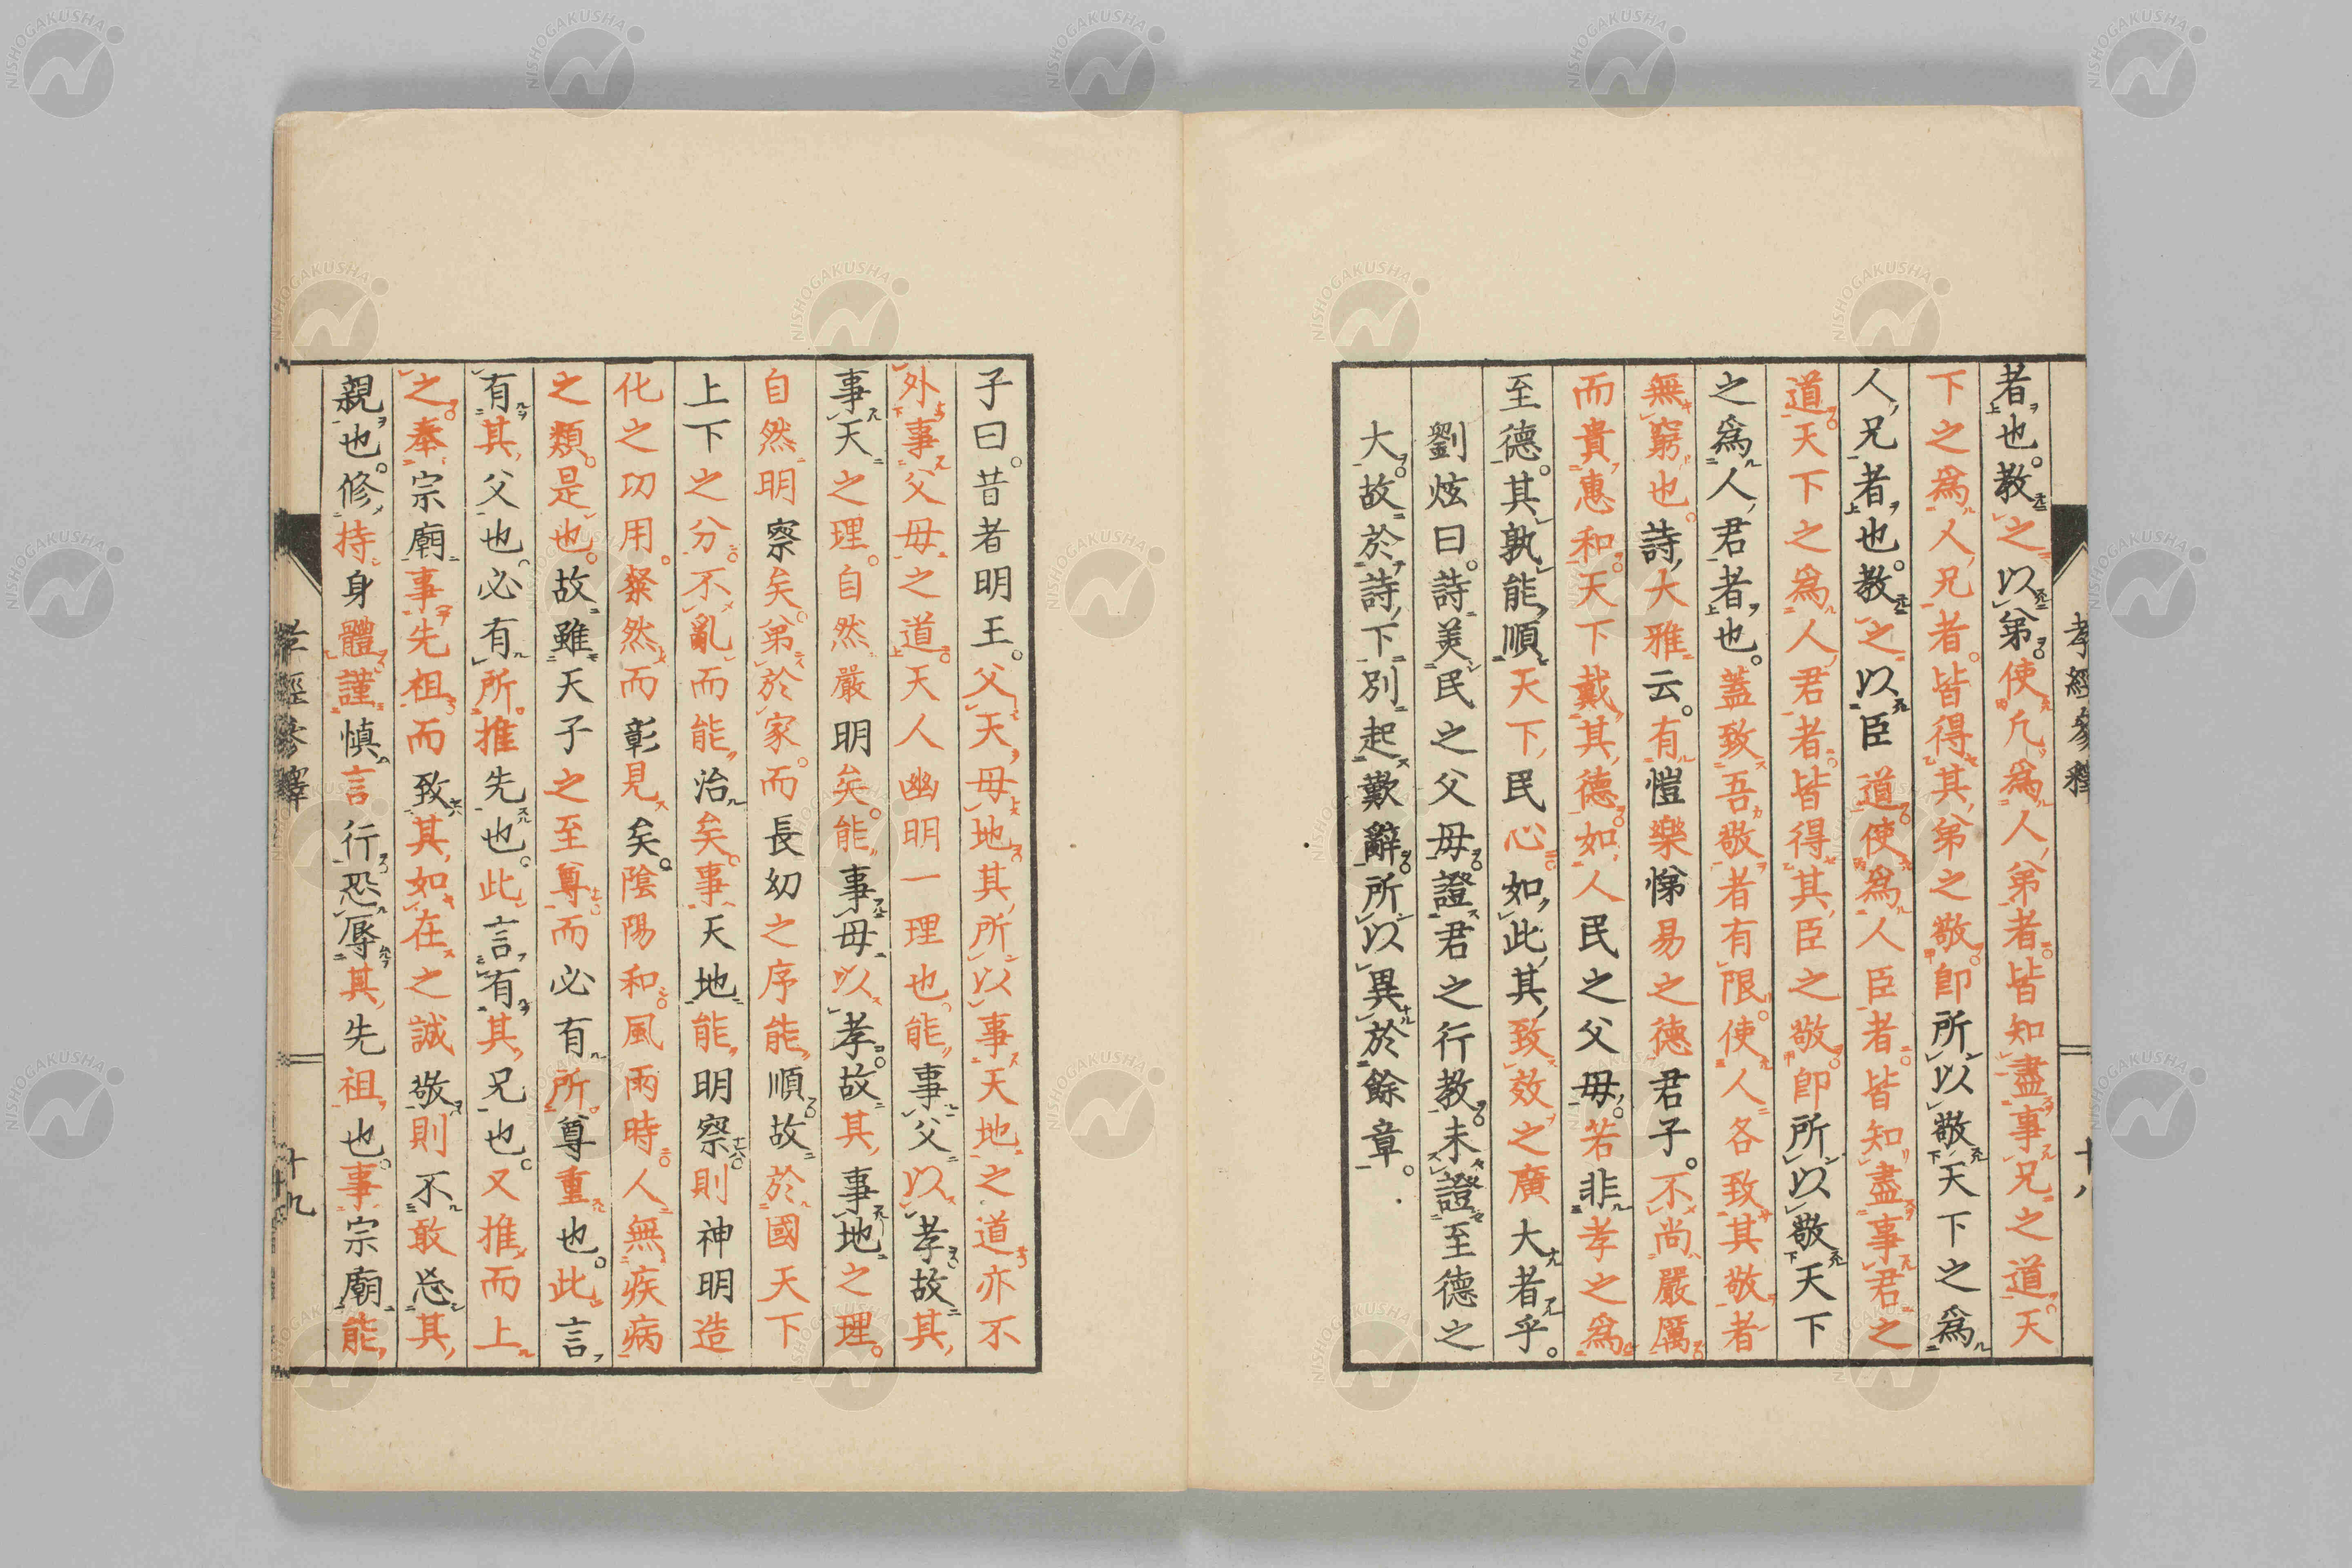 孝經參釋
十八
者也。教之以弟。使凢爲人弟者。皆知盡事兄之道。天
下之爲人兄者。皆得其弟之敬。卽所以敬天下之爲
人兄者也。教之以臣道。使爲人臣者。皆知盡事君之
道。天下之爲人君者。皆得其臣之敬。卽所以敬天下
之爲人君者也。蓋致吾敬者有限。使人各致其敬者
無窮也。詩大雅云。有愷樂悌易之德君子。不尚嚴厲。
而貴惠和。天下戴其德。如人民之父母。若非孝之爲
至德。其孰能順天下民心。如此其致效之廣大者乎。
劉炫曰。詩美民之父母。證君之行教。未證至德之
大。故於詩下別起歎辭。所以異於餘章。
子曰。昔者明王。父天母地。其所以事天地之道。亦不
外事父母之道。天人幽明一理也。能事父以孝。故其
事天之理。自然嚴明矣。能事母以孝。故其事地之理。
自然明察矣。弟於家。而長幼之序能順。故於國天下
上下之分。不亂而能治矣。事天地能明察。則神明造
化之功用。粲然而彰見矣。陰陽和。風雨時。人無疾病
之類。是也。故雖天子之至尊。而必有所尊重也。此言
有其父也。必有所推先也。此言有其兄也。又推而上
之。奉宗廟事先祖。而致其如在之誠敬。則不敢忘其
親也。修持身體。謹慎言行。恐辱其先祖也。事宗廟能
孝經參釋
十九
NISHOGAKUSHA